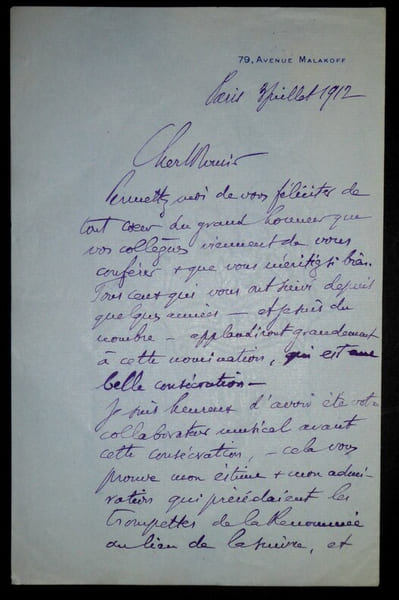 79, AVENUE MALAKOFF
Paris 3 juillet 1912
Cher
Permettez moi de vous féliciter de
tout cœur du grand honneur que
vos collègues viennent de vous
conférer + que vous méritez si bien.
Tous ceux qui vous ont suivi depuis
quelques années — et je suis du
nombre — applaudiront grandement
à cette nomination, qui est une
belle consécration —
Je suis heureux d'avoir été votre
collaborateur musical avant
cette consécration, — cela vous
prouve mon estime + mon admi-
ration qui précédaient les
trompettes de la Renommée
au lieu de la suivre, et